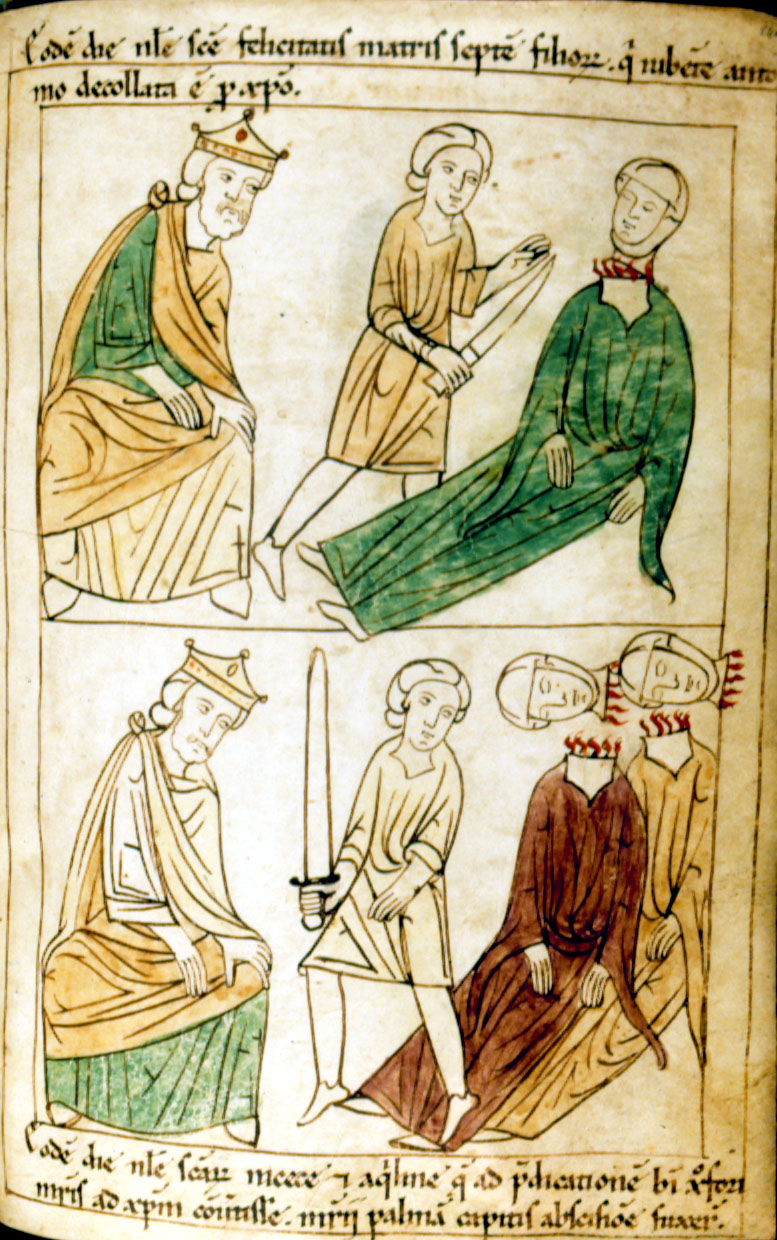 Eodē die nłe scē felicitatis matris septē filioꝝ. q̄ iubēte anto
nio decollata ē p xp̄o.
Eodē die nłe scāꝝ nicece ⁊ aq̇line q̄ ad p̄dicationē bī xp̄ofori
mr̄is ad xp̄m cōūtisse. mr̄ii palmā capitis abscisiōe suxer̄.